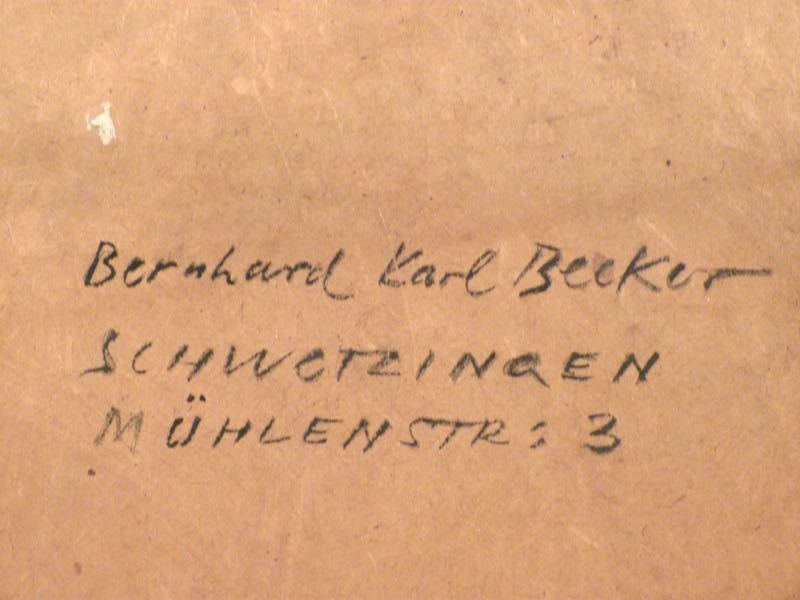 Bernhard Karl Becker
SCHWETZINGEN
MÜHLENSTR: 3